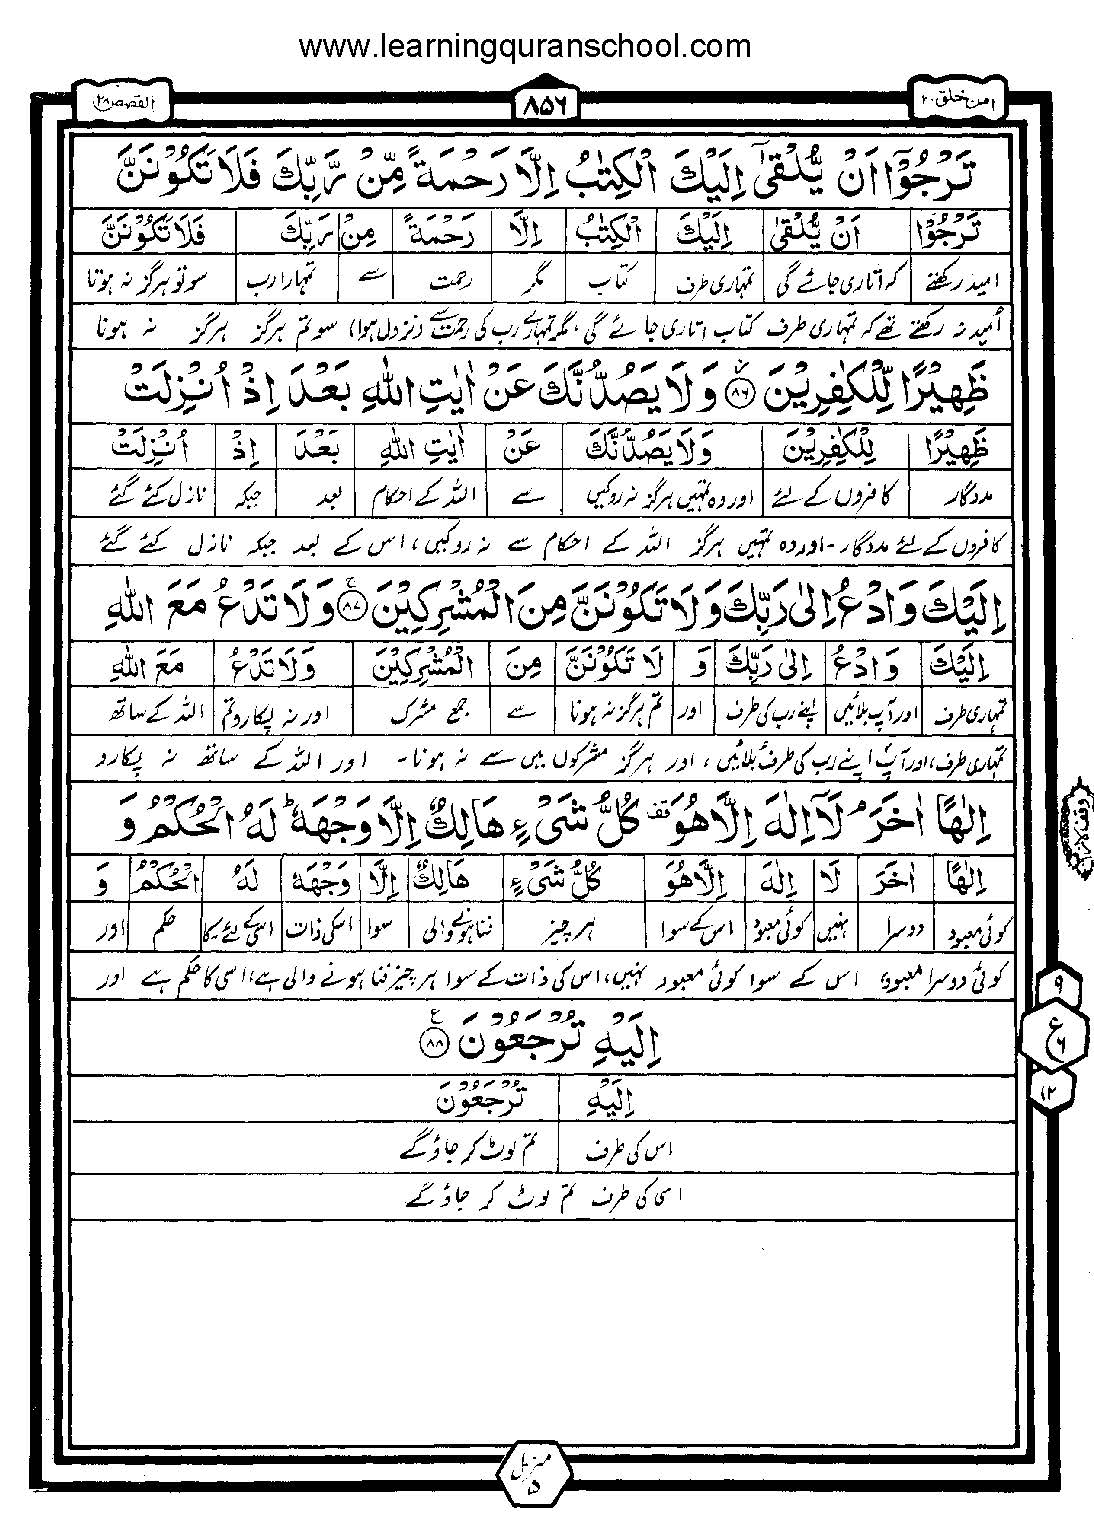 www.learningquranschool.com
امن خلق ۲۰
۸۵۶
القصص ۲۸
تَرْجُوْۤا اَنْ یُّلْقٰۤی اِلَیْكَ الْكِتٰبُ اِلَّا رَحْمَةً مِّنْ رَّبِّكَ فَلَا تَكُوْنَنَّ
تَرْجُوْۤا اَنْ یُّلْقٰی اِلَیْكَ الْكِتٰبُ اِلَّا رَحْمَةً مِنْ رَبِّكَ فَلَا تَكُوْنَنَّ
امید رکھتے کہ اتاری جائے گی تمہاری طرف کتاب مگر رحمت سے تمہارا رب سو تو ہرگز نہ ہوتا
اُمید نہ رکھتے تھے کہ تمہاری طرف کتاب اتاری جائے گی، مگر تمہارے رب کی رحمت سے (نزول ہوا) سو تم ہرگز ہرگز نہ ہونا
ظَهِیْرًا لِّلْكٰفِرِیْنَ ﴿۸۶﴾ وَلَا یَصُدُّنَّكَ عَنْ اٰیٰتِ اللّٰهِ بَعْدَ اِذْ اُنْزِلَتْ
ظَهِیْرًا لِلْكٰفِرِیْنَ وَلَا یَصُدُّنَّكَ عَنْ اٰیٰتِ اللّٰهِ بَعْدَ اِذْ اُنْزِلَتْ
مددگار کافروں کے لئے اور وہ تمہیں ہرگز نہ روکیں سے اللہ کے احکام بعد جبکہ نازل کئے گئے
کافروں کے لئے مددگار۔ اور وہ تمہیں ہرگز اللہ کے احکام سے نہ روکیں، اس کے بعد جبکہ نازل کئے گئے
اِلَیْكَ وَادْعُ اِلٰی رَبِّكَ وَلَا تَكُوْنَنَّ مِنَ الْمُشْرِكِیْنَ ﴿۸۷﴾ وَلَا تَدْعُ مَعَ اللّٰهِ
اِلَیْكَ وَادْعُ اِلٰی رَبِّكَ وَ لَا تَكُوْنَنَّ مِنَ الْمُشْرِكِیْنَ وَلَا تَدْعُ مَعَ اللّٰهِ
تمہاری طرف اور آپ بلائیں اپنے رب کی طرف اور تم ہرگز نہ ہونا سے جمع مشرک اور نہ پکارو تم اللہ کے ساتھ
تمہاری طرف، اور آپ اپنے رب کی طرف بلائیں، اور ہرگز مشرکوں میں سے نہ ہونا۔ اور اللہ کے ساتھ نہ پکارو
اِلٰهًا اٰخَرَ ۘ لَاۤ اِلٰهَ اِلَّا هُوَ ۫ كُلُّ شَیْءٍ هَالِكٌ اِلَّا وَجْهَهٗ ؕ لَهُ الْحُكْمُ وَ
اِلٰهًا اٰخَرَ لَا اِلٰهَ اِلَّا هُوَ كُلُّ شَیْءٍ هَالِكٌ اِلَّا وَجْهَهٗ لَهُ الْحُكْمُ وَ
کوئی معبود دوسرا نہیں کوئی معبود اس کے سوا ہر چیز فنا ہونے والی سوا اسکی ذات اسی کے لئے ۔کا حکم اور
کوئی دوسرا معبود، اس کے سوا کوئی معبود نہیں، اس کی ذات کے سوا ہر چیز فنا ہونے والی ہے، اسی کا حکم ہے اور
اِلَیْهِ تُرْجَعُوْنَ ﴿۸۸﴾
اِلَیْهِ تُرْجَعُوْنَ
اس کی طرف تم لوٹ کر جاؤ گے
اسی کی طرف تم لوٹ کر جاؤ گے
وقف لازم
۹
ع
۶
۱۲
منزل
۵